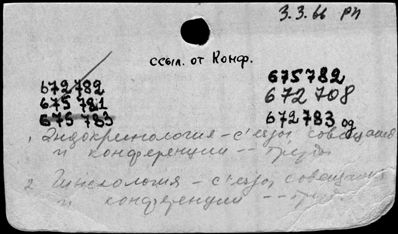 3.3.66 РП
ссыл. от Конф.
672782 675782
675781 672708
675783 672783 од
1. Эндокринология – съезды, совещания
и конференции -- Труды
2. Гинекология – съезды, совещания
и конференции --- Труды